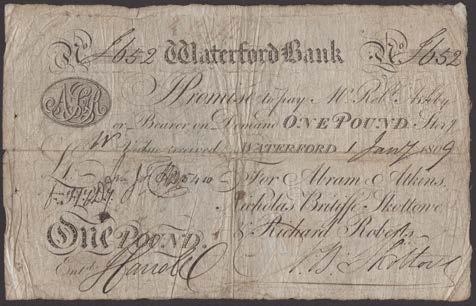 No £652 Waterford Bank No £652
ASR
I Promise to pay Mr Robt Ashby
or Bearer on Demand ONE POUND Sterg
Value received WATERFORD 1 Jany 1809
For Abram Atkins,
Nicholas Britiffe Skottowe
One POUND. & Richard Roberts
Entd N. B. Skottowe